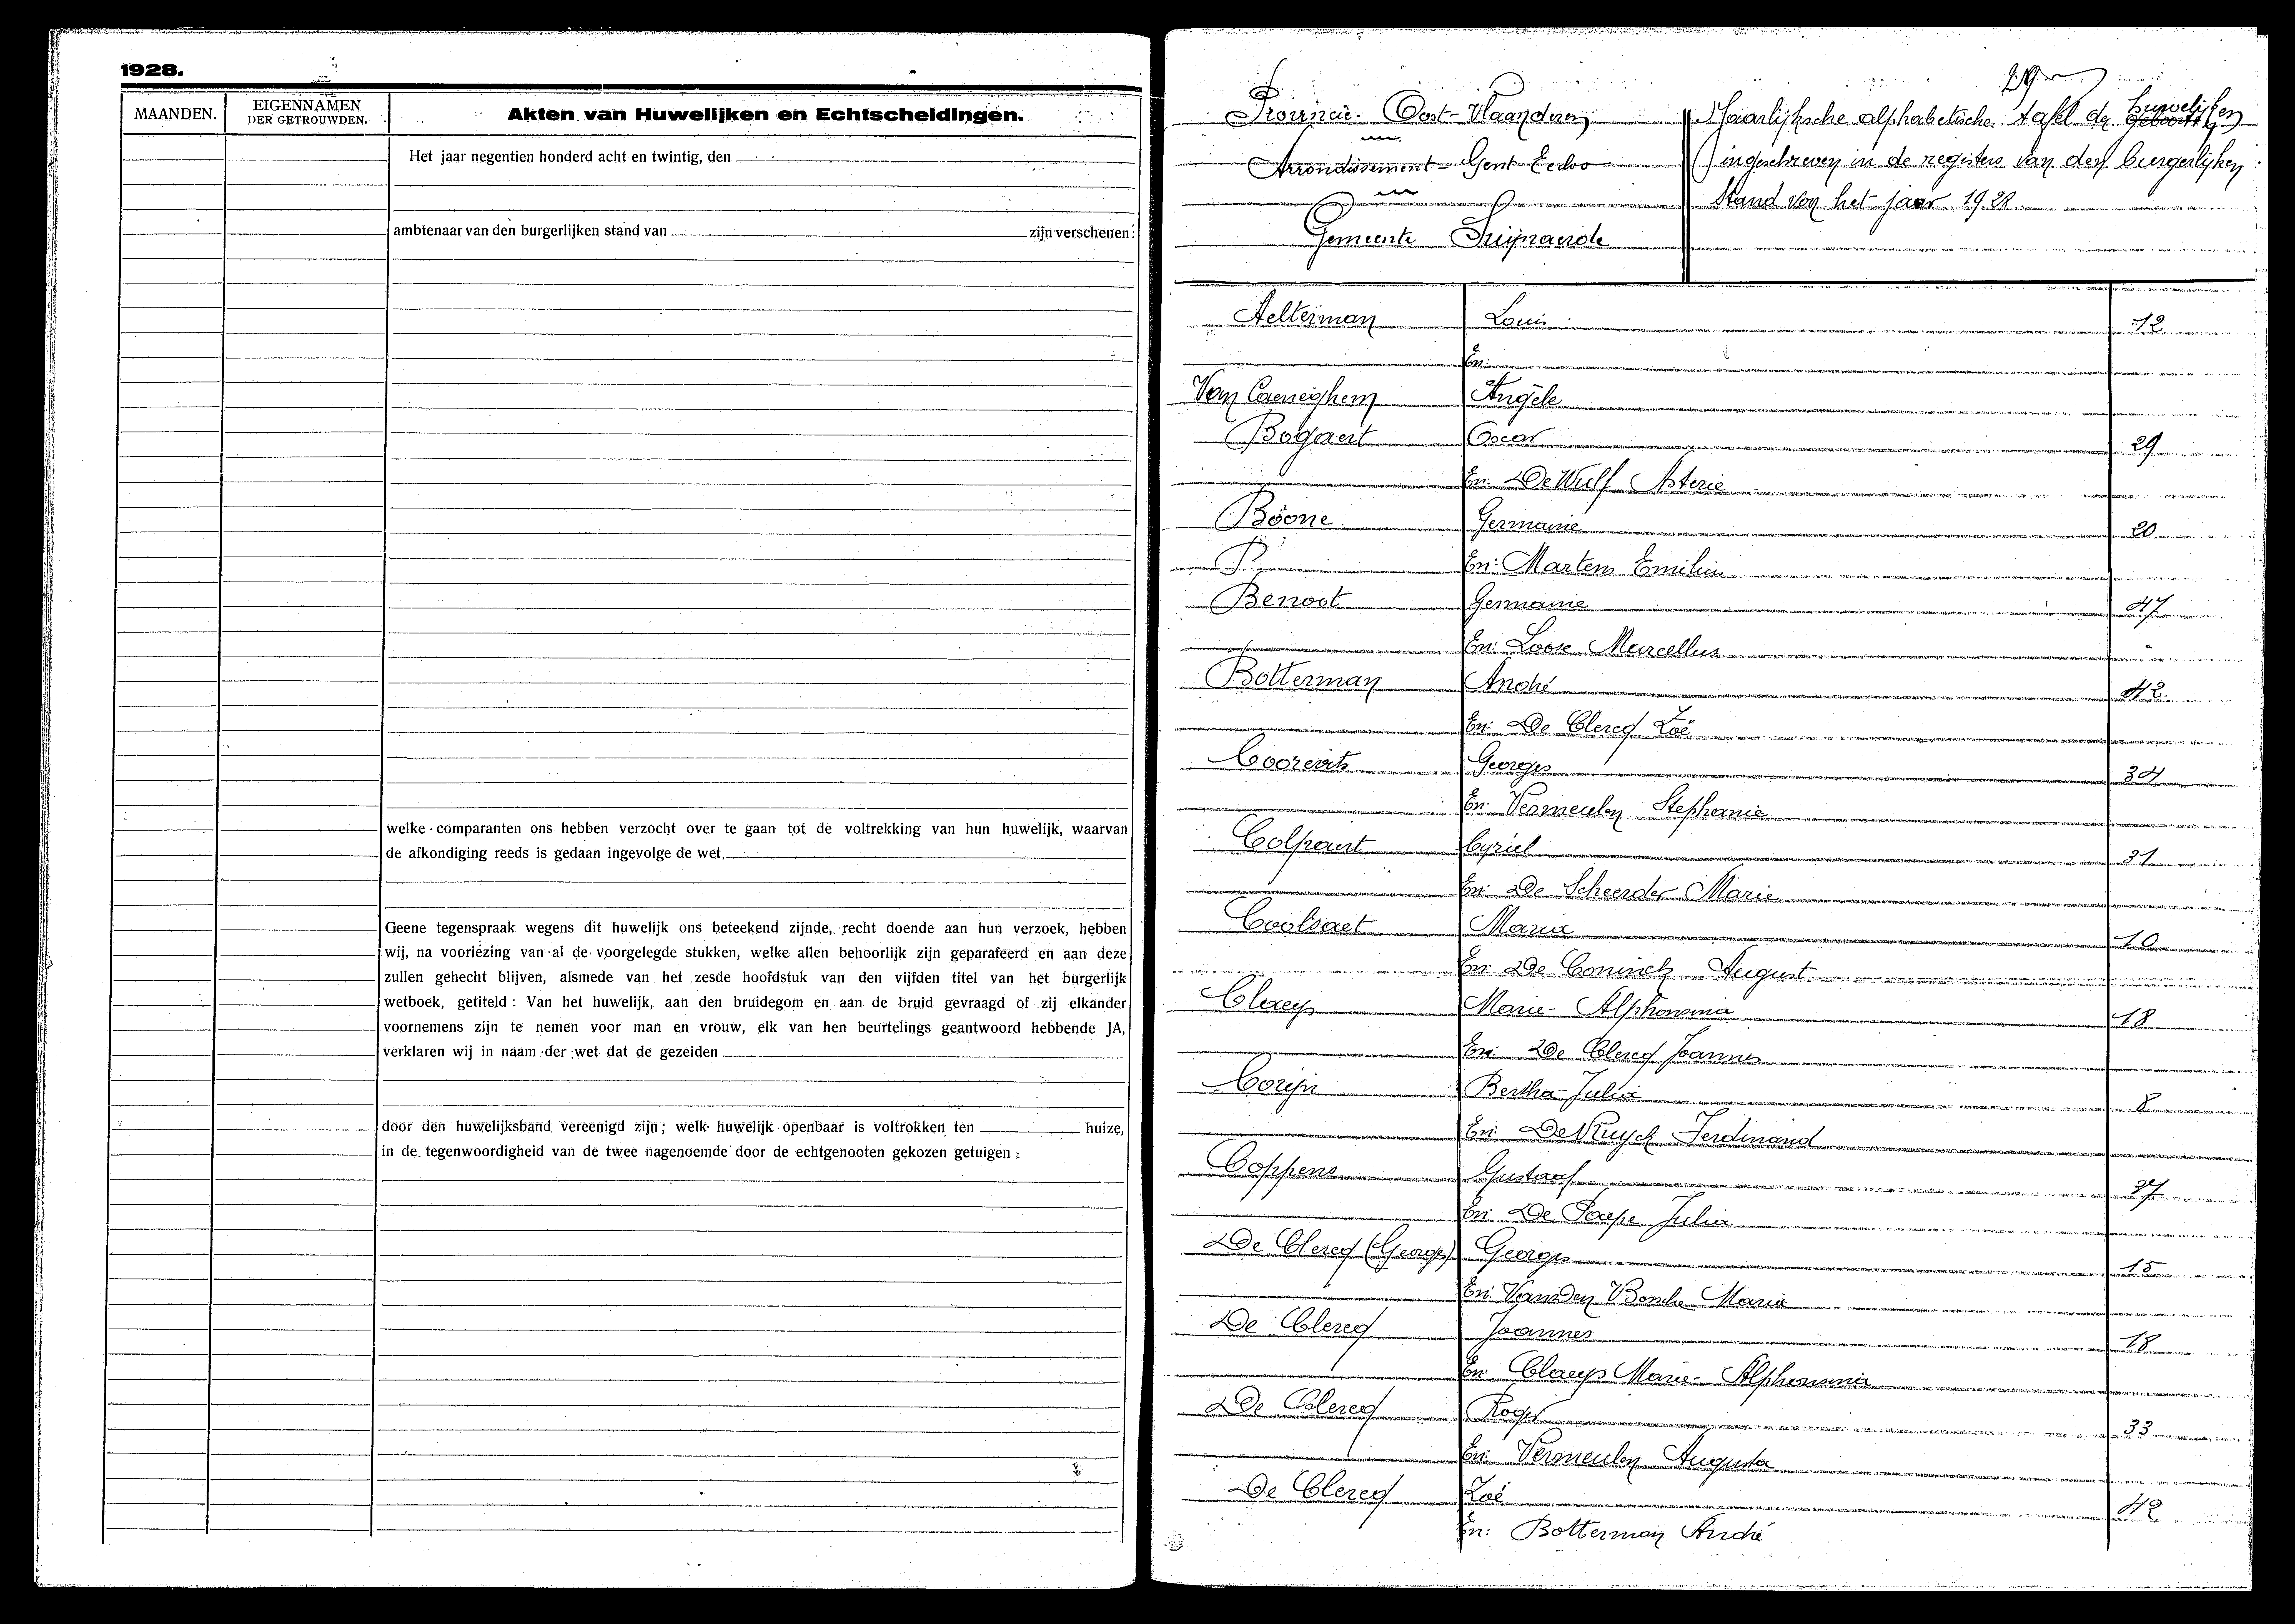 1928.
MAANDEN.
EIGENNAMEN
DER GETROUWDEN.
Akten van Huwelijken en Echtscheidingen.
Het jaar negentien honderd acht en twintig, den
ambtenaar van den burgerlijken stand van zijn verschenen:
welke comparanten ons hebben verzocht over te gaan tot de voltrekking van hun huwelijk, waarvan
de afkondiging reeds is gedaan ingevolge de wet,
Geene tegenspraak wegens dit huwelijk ons beteekend zijnde, recht doende aan hun verzoek, hebben
wij, na voorlezing van al de voorgelegde stukken, welke allen behoorlijk zijn geparafeerd en aan deze
zullen gehecht blijven, alsmede van het zesde hoofdstuk van den vijfden titel van het burgerlijk
wetboek, getiteld: Van het huwelijk, aan den bruidegom en aan de bruid gevraagd of zij elkander
voornemens zijn te nemen voor man en vrouw, elk van hen beurtelings geantwoord hebbende JA,
verklaren wij in naam der wet dat de gezeiden
door den huwelijksband vereenigd zijn; welk huwelijk openbaar is voltrokken ten huize,
in de tegenwoordigheid van de twee nagenoemde door de echtgenooten gekozen getuigen:
Provincie Oost-Vlaanderen
Arrondissement Gent Eecloo
Gemeente Swijnaerde
Jaarlijksche alphabetische tafel der huwelijken
ingeschreven in de registers van den burgerlijken
stand van het jaar 1928.
Aelterman Louis 12
En:
Van Caeneghem Angèle
Bogaert Oscar 29
En: De Wulf Asterie
Boone Germaine 20
En: Martens Emilius
Benoot Germaine 47
En: Loose Marcellus
Botterman André 42
En: De Clercq Zoë
Coorevits Georges 34
En: Vermeulen Stephanie
Colpaert Cyriel 31
En: De Scheerder Marie
Coolsaet Maria 10
En: De Coninck August
Claeys Marie-Alphonsina 18
En: De Clercq Joannes
Corijn Bertha-Julia 8
En: De Kuysch Ferdinand
Coppens Gustaaf 37
En: De Paepe Julia
De Clercq (Georges) Georges 15
En: Vanden Bossche Maria
De Clercq Joannes 18
En: Claeys Marie-Alphonsina
De Clercq Roger 33
En: Vermeulen Augusta
De Clercq Zoé 42
En: Botterman André